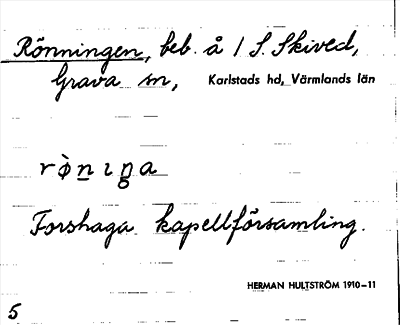 Rönningen, beb. å 1 S. Skived,
Grava sn, Karlstads hd, Värmlands län
rø̀nıŋa
Forshaga kapellförsamling.
HERMAN HULTSTRÖM 1910–11
5